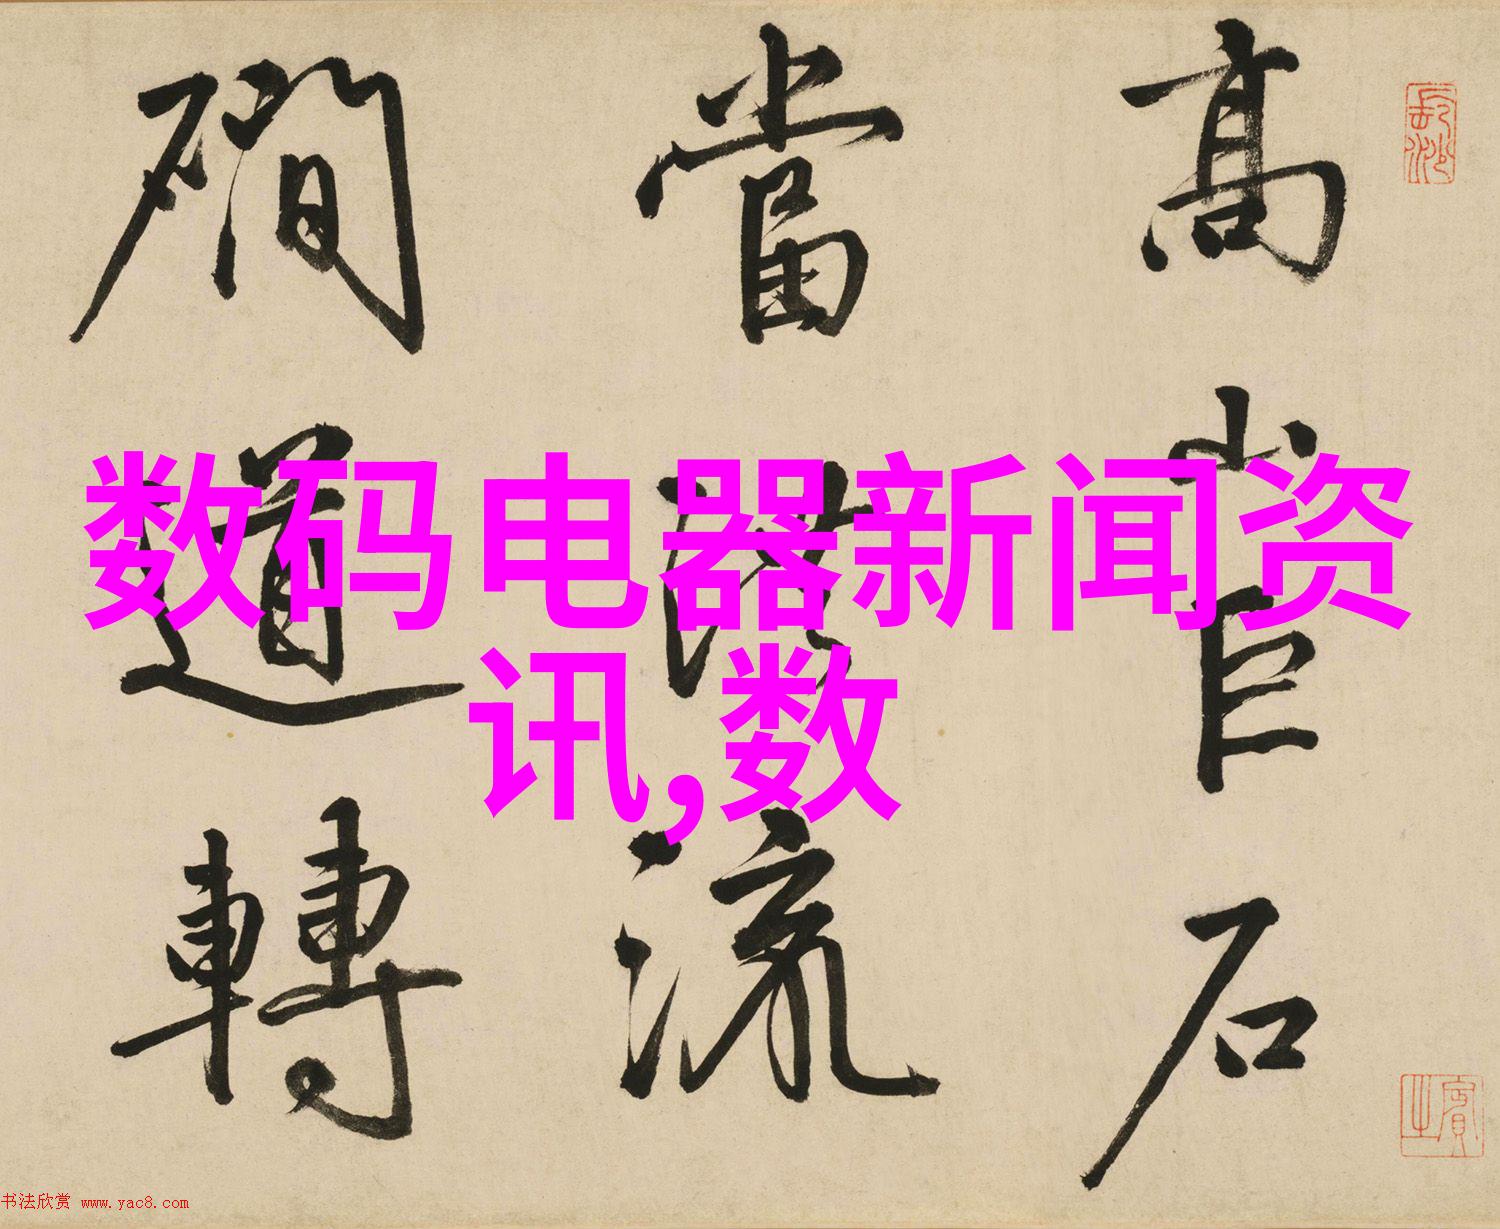 高當礀
岩巨石
流
道轉
数码电器新闻资
讯,数
书法欣赏 www.yac8.com